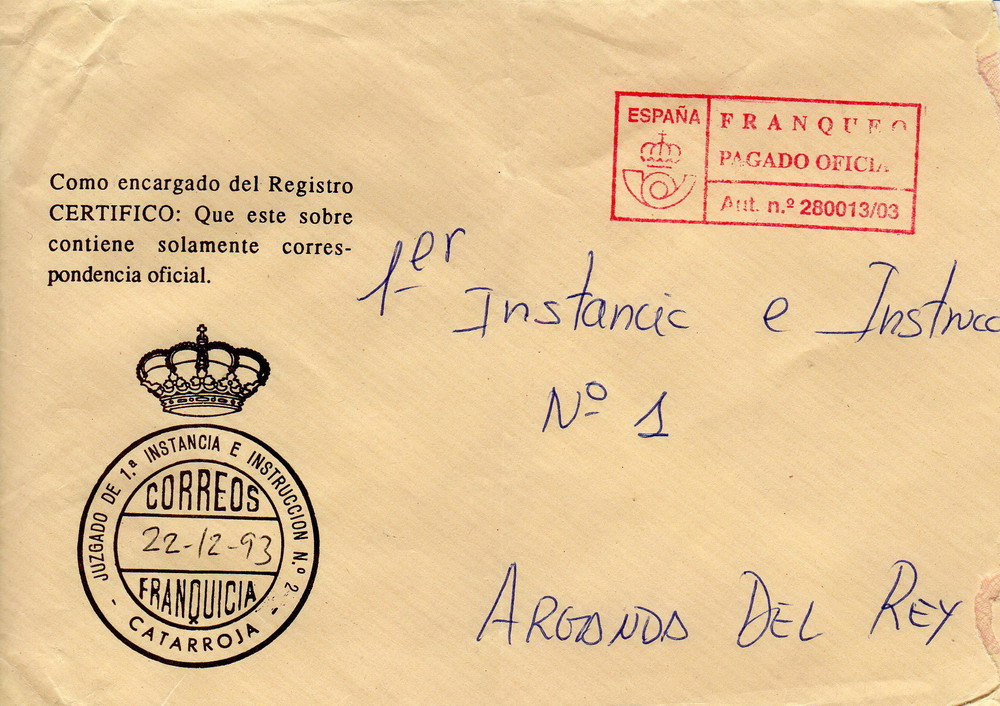 ESPAÑA
FRANQUEO
PAGADO OFICIAL
Aut. n.º 280013/03
Como encargado del Registro
CERTIFICO: Que este sobre
contiene solamente corres-
pondencia oficial.
1er Instancia e Instrucc
Nº 1
Arganda Del Rey
JUZGADO DE 1.ª INSTANCIA E INSTRUCCION N.º 2
CORREOS
22-12-93
FRANQUICIA
- CATARROJA -